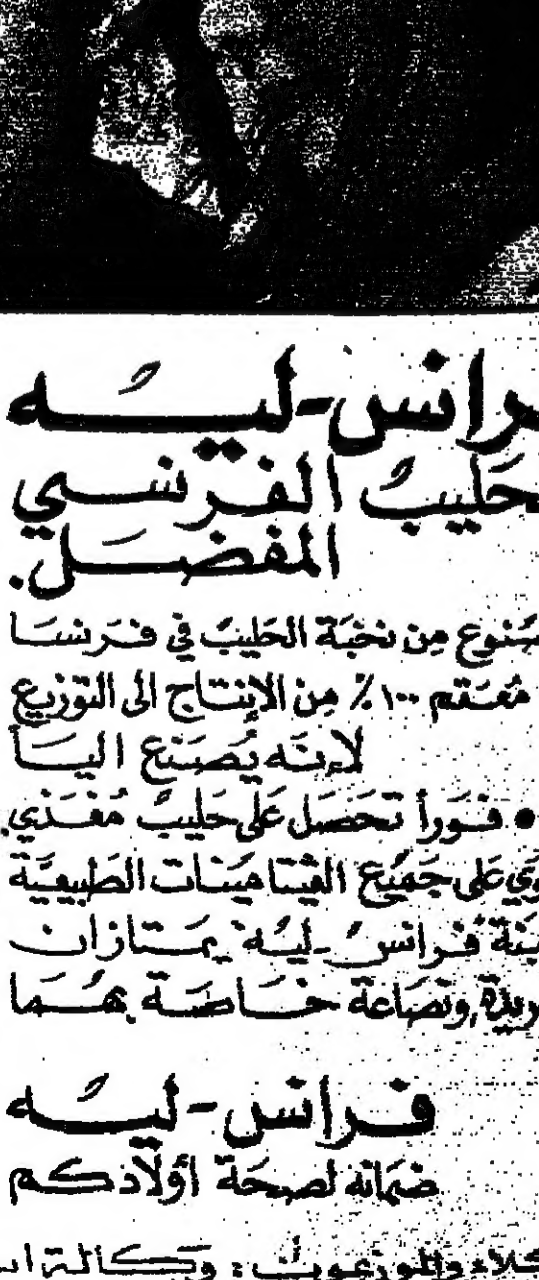 رانس-ليه
حليب الفرنسي
المفضل.
صنوع من نخبة الحليب في فرنسا
معقم ١٠٠٪ من الإنتاج الى التوزيع
لأنه يُصنع اليا
• فوراً تحصل على حليب مغذي.
وي على جميع الفيتامينات الطبيعية
فرانس-ليه يمتازان
ونصاعة خاصة بهما
فرانس-ليه
ضمانه لصحة أولادكم
كلاء والموزعون: وكالة